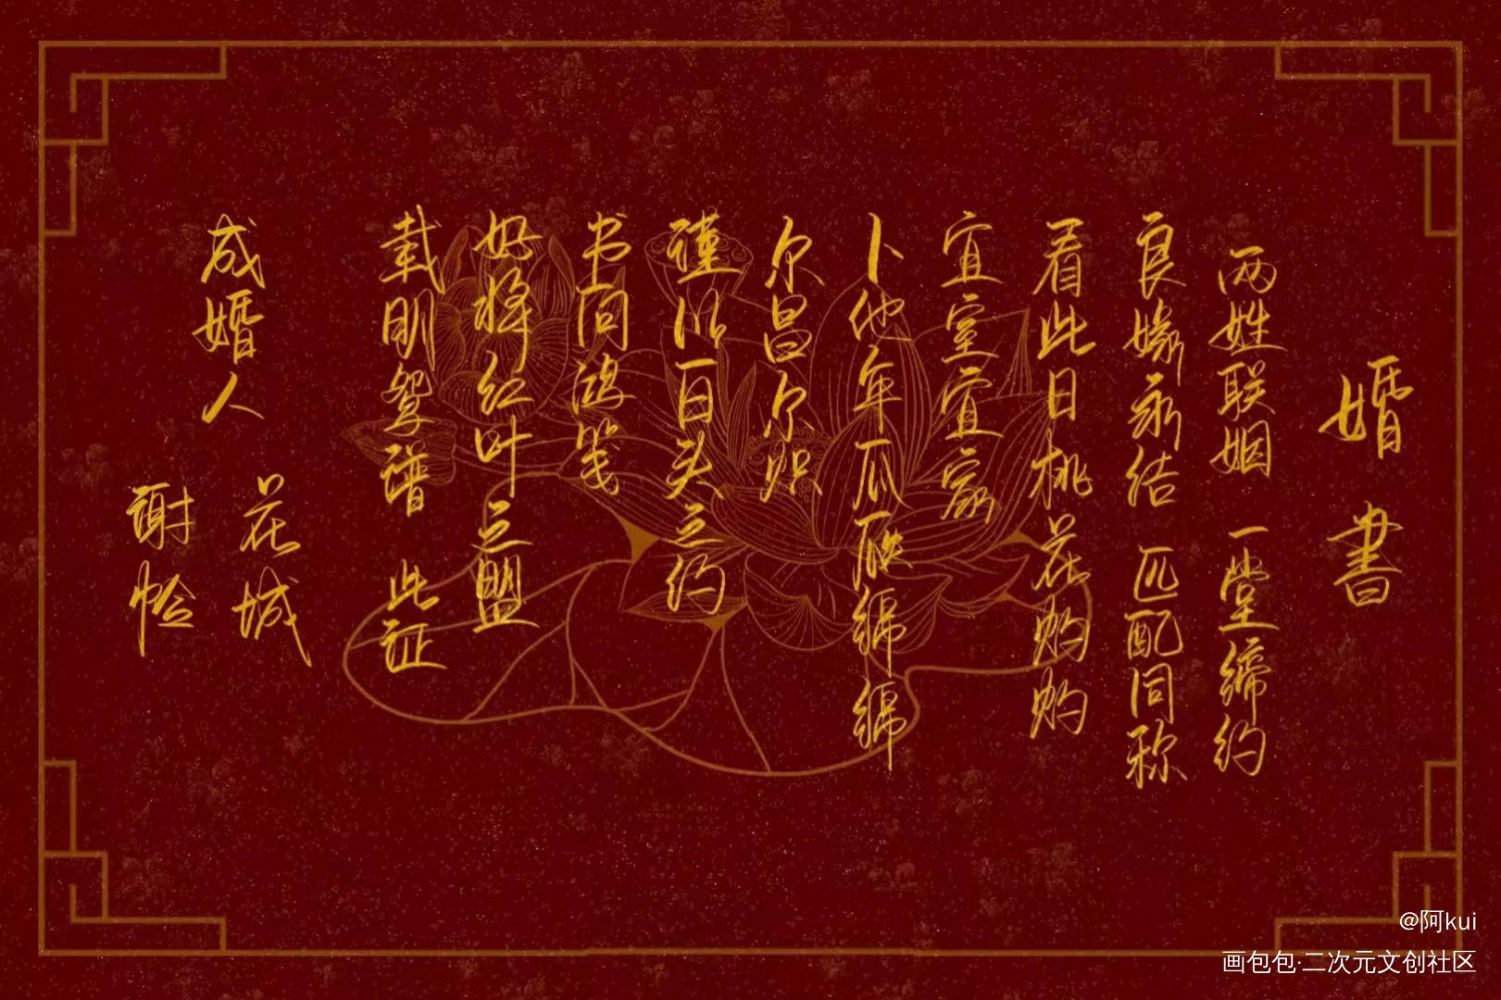 婚書
两姓联姻 一堂缔约
良缘永结 匹配同称
看此日桃花灼灼
宜室宜家
卜他年瓜瓞绵绵
尔昌尔炽
谨以白头之约
书向鸿笺
好将红叶之盟
载明鸳谱 此证
成婚人
花城
谢怜
@阿kui
画包包·二次元文创社区